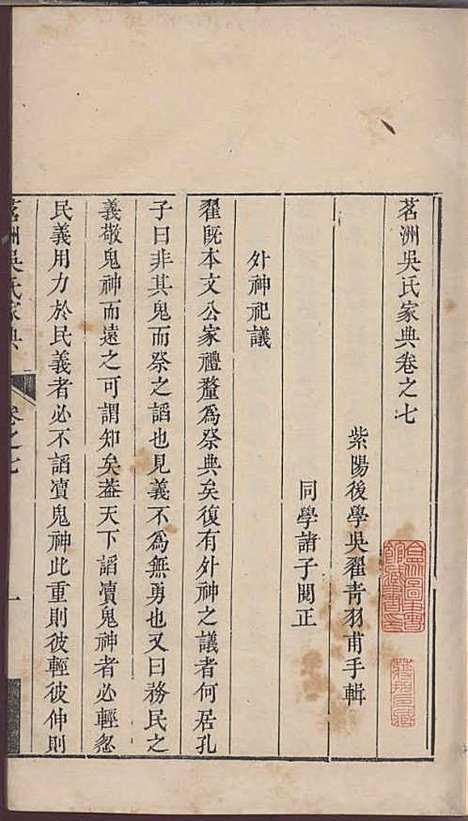 茗洲吳氏家典卷之七
紫陽後學吳翟青羽甫手輯
同學諸子閱正
外神祀議
翟旣本文公家禮釐為祭典矣復有外神之議者何居孔
子曰非其鬼而祭之諂也見義不為無勇也又曰務民之
義敬鬼神而遠之可謂知矣葢天下諂凟鬼神者必輕忽
民義用力於民義者必不諂凟鬼神此重則彼輕彼伸則
茗洲吳氏家典 卷之七 一